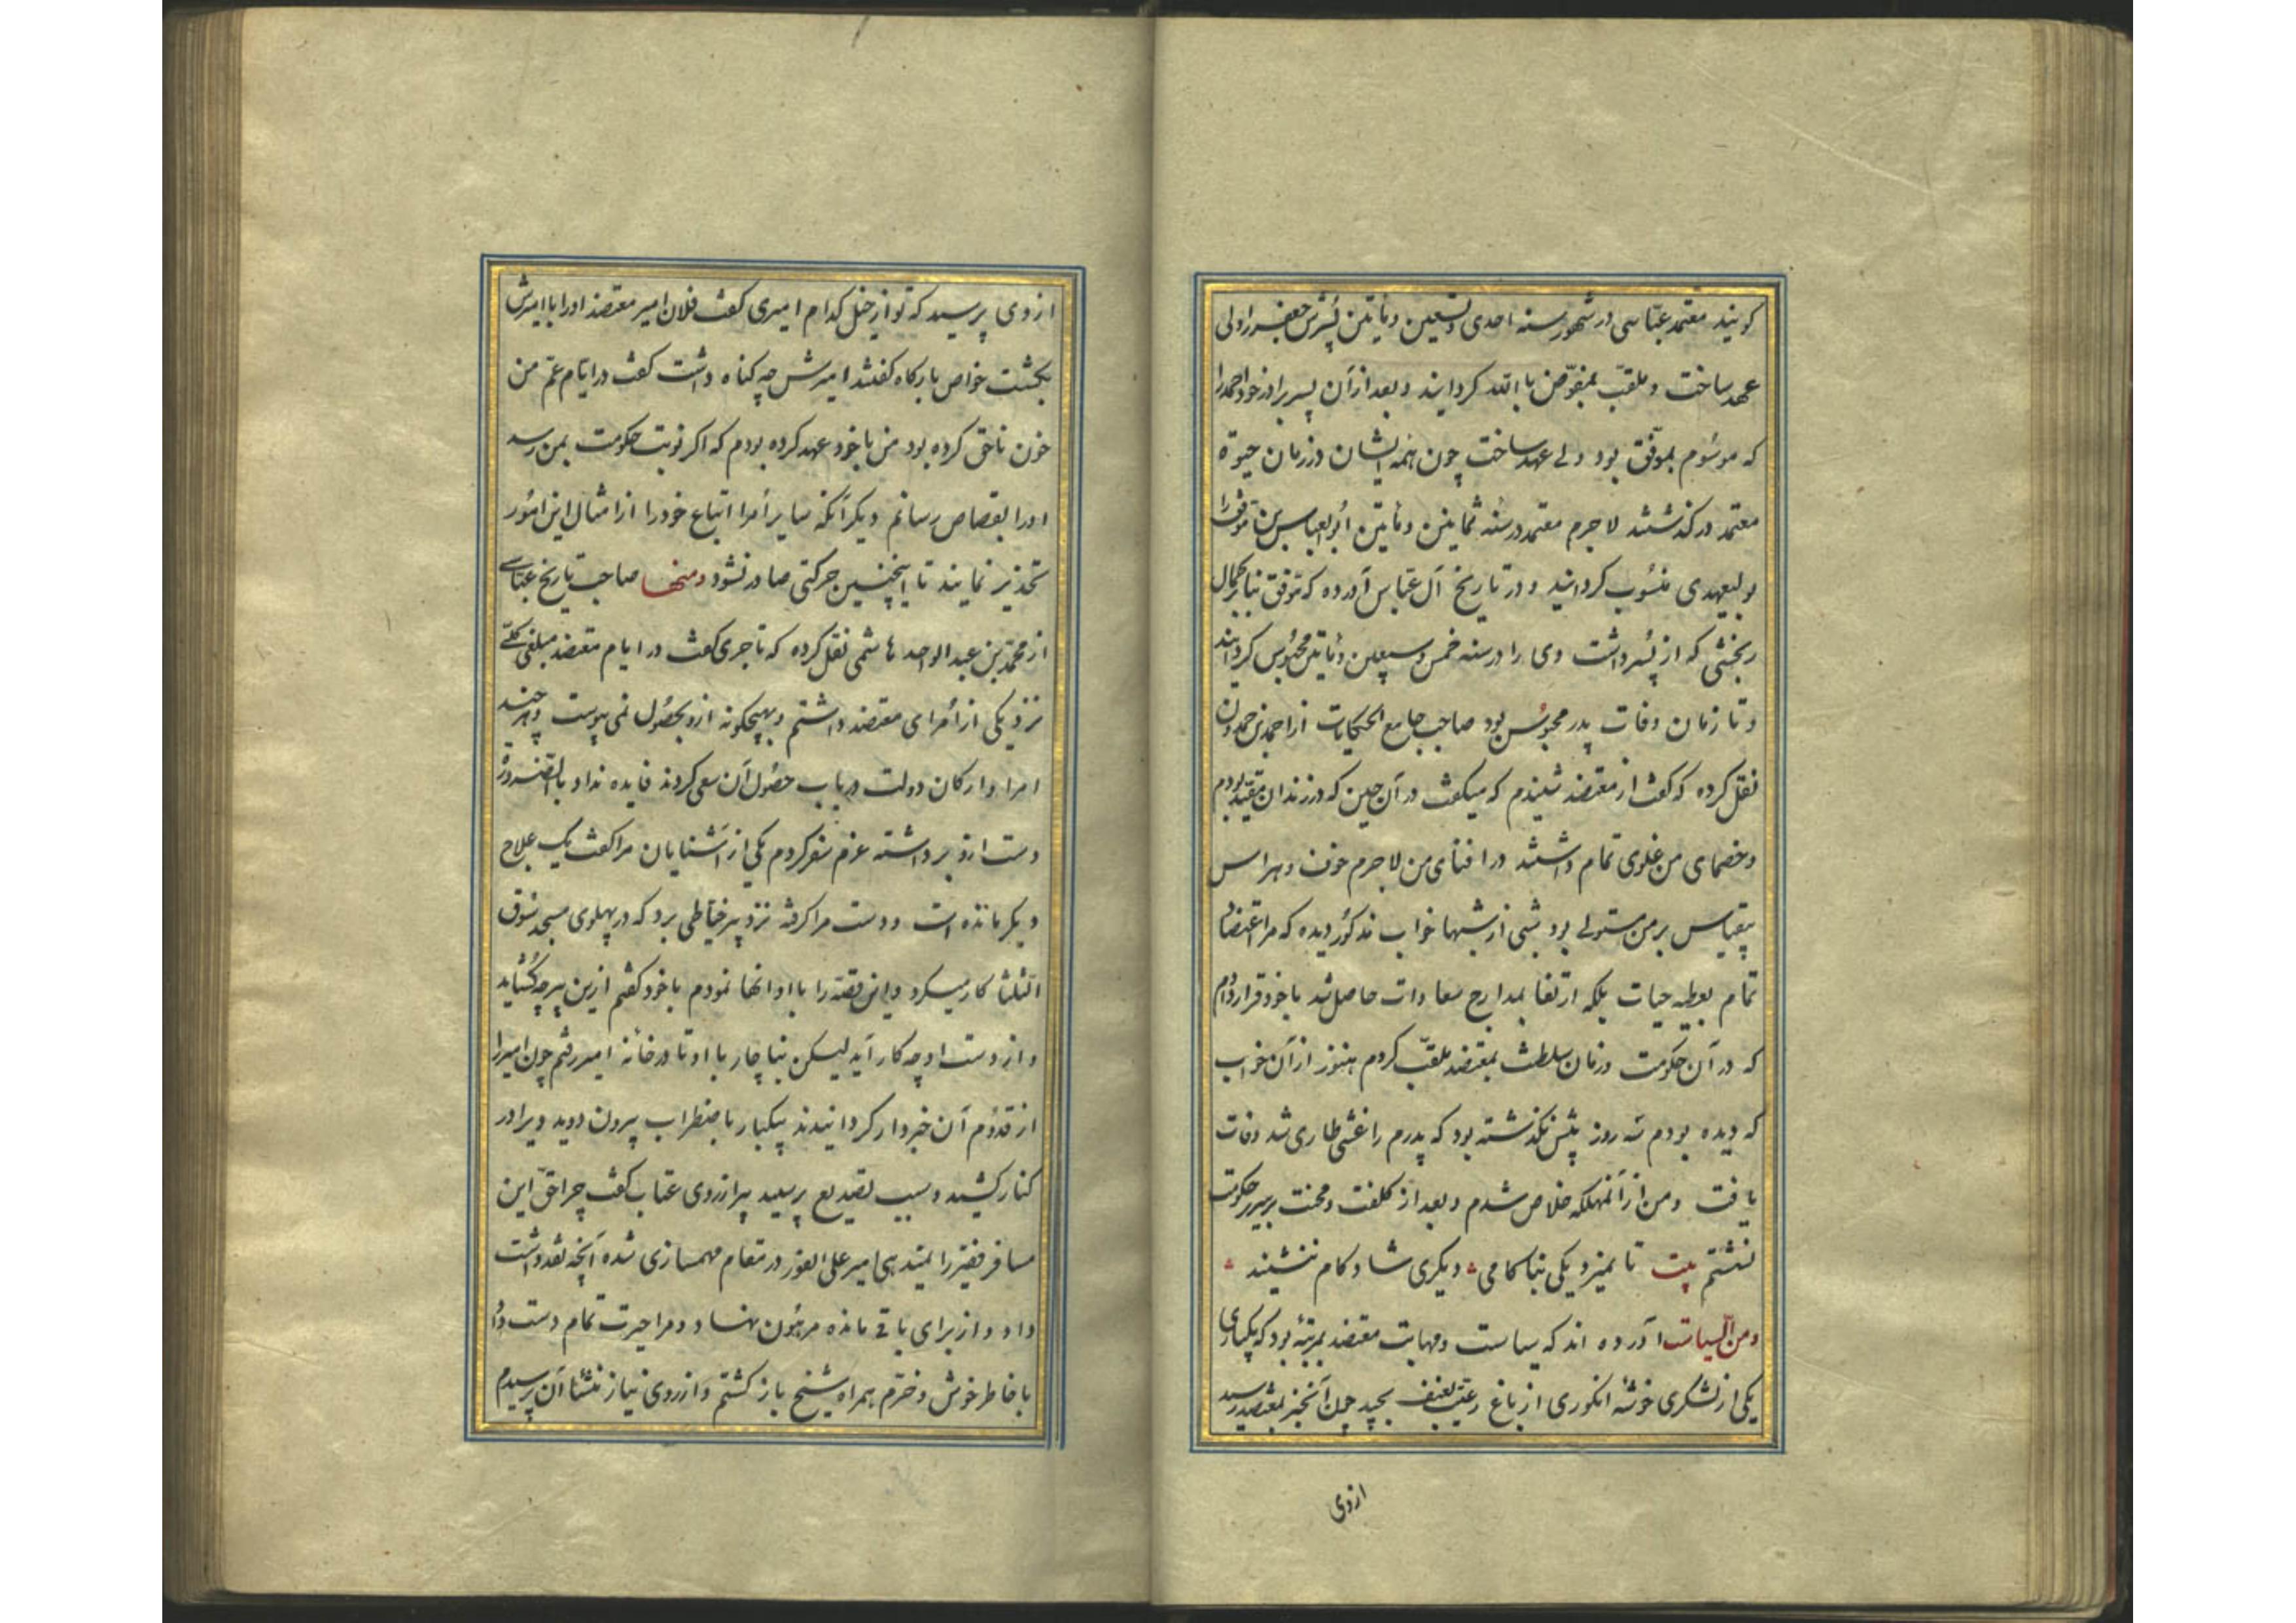 کویند معتمد عباسی در شهور سنه احدی و تسعین و مأتین پسرش جعفر را ولی
عهد ساخت و ملقب بمفوض باالله کردایند و بعد از آن پسر برادر خود احمد را
که موسوم بموفق بود ولی عهد ساخت چون همه ایشان در زمان حیوة
معتمد درکذشتند لاجرم معتمد در سنه ثمانین و مأتین ابو العباس بن موفق را
بولیعهدی منسوب کردانید و در تاریخ آل عباس آورده که موفق بنابر کمال
رنجشی که از پسر داشت وی را در سنه خمس و سبعین و مأتین محبوس کردایند
و تا زمان وفات پدر محبوس بود صاحب جامع الحکایات از احمد بن حمدون
نقل کرده که کفت از معتضد شنیدم که میکفت در آن حین که در زندان مقید بودم
و خصمای من غلوی تمام داشتند در افنای من لاجرم خوف و هراس
بیقیاس بر من مستولی بود شبی از شبها خواب مذکور دیده که مرا اعتضاد
تمام بعطیه حیات بلکه ارتقا بمدارج سعادات حاصل شد باخود قرار دادم
که در آن حکومت و زمان سلطنت بمعتضد ملقب کردم هنوز از آن خواب
که دیده بودم سه روز پیش نکذشته بود که پدرم را غشی طاری شد وفات
یافت و من از آنمهلکه خلاص شدم و بعد از کلفت و محنت بر سریر حکومت
نشستم بیت تا نمیرد یکی بناکامی دیکری شادکام ننشیند
و من السیاسات آورده اند که سیاست و مهابت معتضد بمرتبه بود که یکباری
یکی از لشکری خوشه انکوری از باغ رعیت بعنف بچید چون آنخبر بمعتضد رسید
ازوی
ازوی پرسید که تو از خیل کدام امیری کفت فلان امیر معتضد اورا با امیرش
بکشت خواص بارکاه کفتند امیرش چه کناه داشت کفت در ایام عم من
خون ناحق کرده بود من باخود عهد کرده بودم که اکر نوبت حکومت بمن رسد
اورا بقصاص رسانم دیکر آنکه سایر أمرا اتباع خودرا از امثال این امور
تحذیر نمایند تا اینچنین حرکتی صادر نشود و منها صاحب تاریخ عباسی
از محمد بن عبد الواحد هاشمی نقل کرده که تاجری کفت در ایام معتضد مبلغی کلی
نزد یکی از أمرای معتضد داشتم و بهیچکونه ازو بحصول نمی پیوست و هرچند
امرا و ارکان دولت در باب حصول آن سعی کردند فایده نداد بالضروره
دست ازو برداشته عزم سفر کردم یکی از آشنایان مرا کفت یک علاج
دیکر مانده است و دست مرا کرفته نزد پیر خیاطی برد که در پهلوی مسجد سوق
الثلثا کار میکرد و این قصه را با او انها نمودم باخود کفتم ازین پیر چه کشاید
و از دست او چه کار آید لیکن بناچار با او تا در خانه امیر رفتم چون امیر را
از قدوم آن خبردار کردانیدند بیکبار باضطراب بیرون دوید و یرا در
کنار کشید و سبب تصدیع پرسید پیر از روی عتاب کفت چرا حق این
مسافر فقیر را نمیدهی امیر علی الفور در مقام مهمسازی شده آنچه نقد داشت
داد و از برای باقی مانده مرهون نهاد و مرا حیرت تمام دست داد
باخاطر خوش و خرم همراه شیخ باز کشتم و از روی نیاز منشأ آن پرسیدم